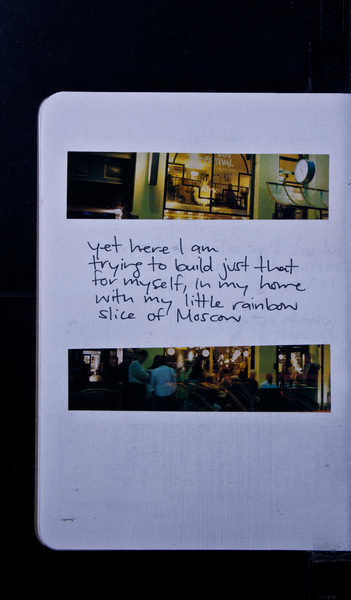 yet here I am
trying to build just that
for myself, in my home
with my little rainbow
slice of Moscow